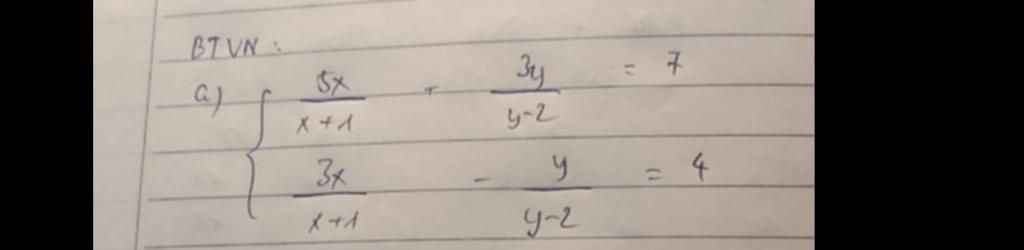 BTVN :
a) { 5x/(x+1) + 3y/(y-2) = 7
3x/(x+1) - y/(y-2) = 4